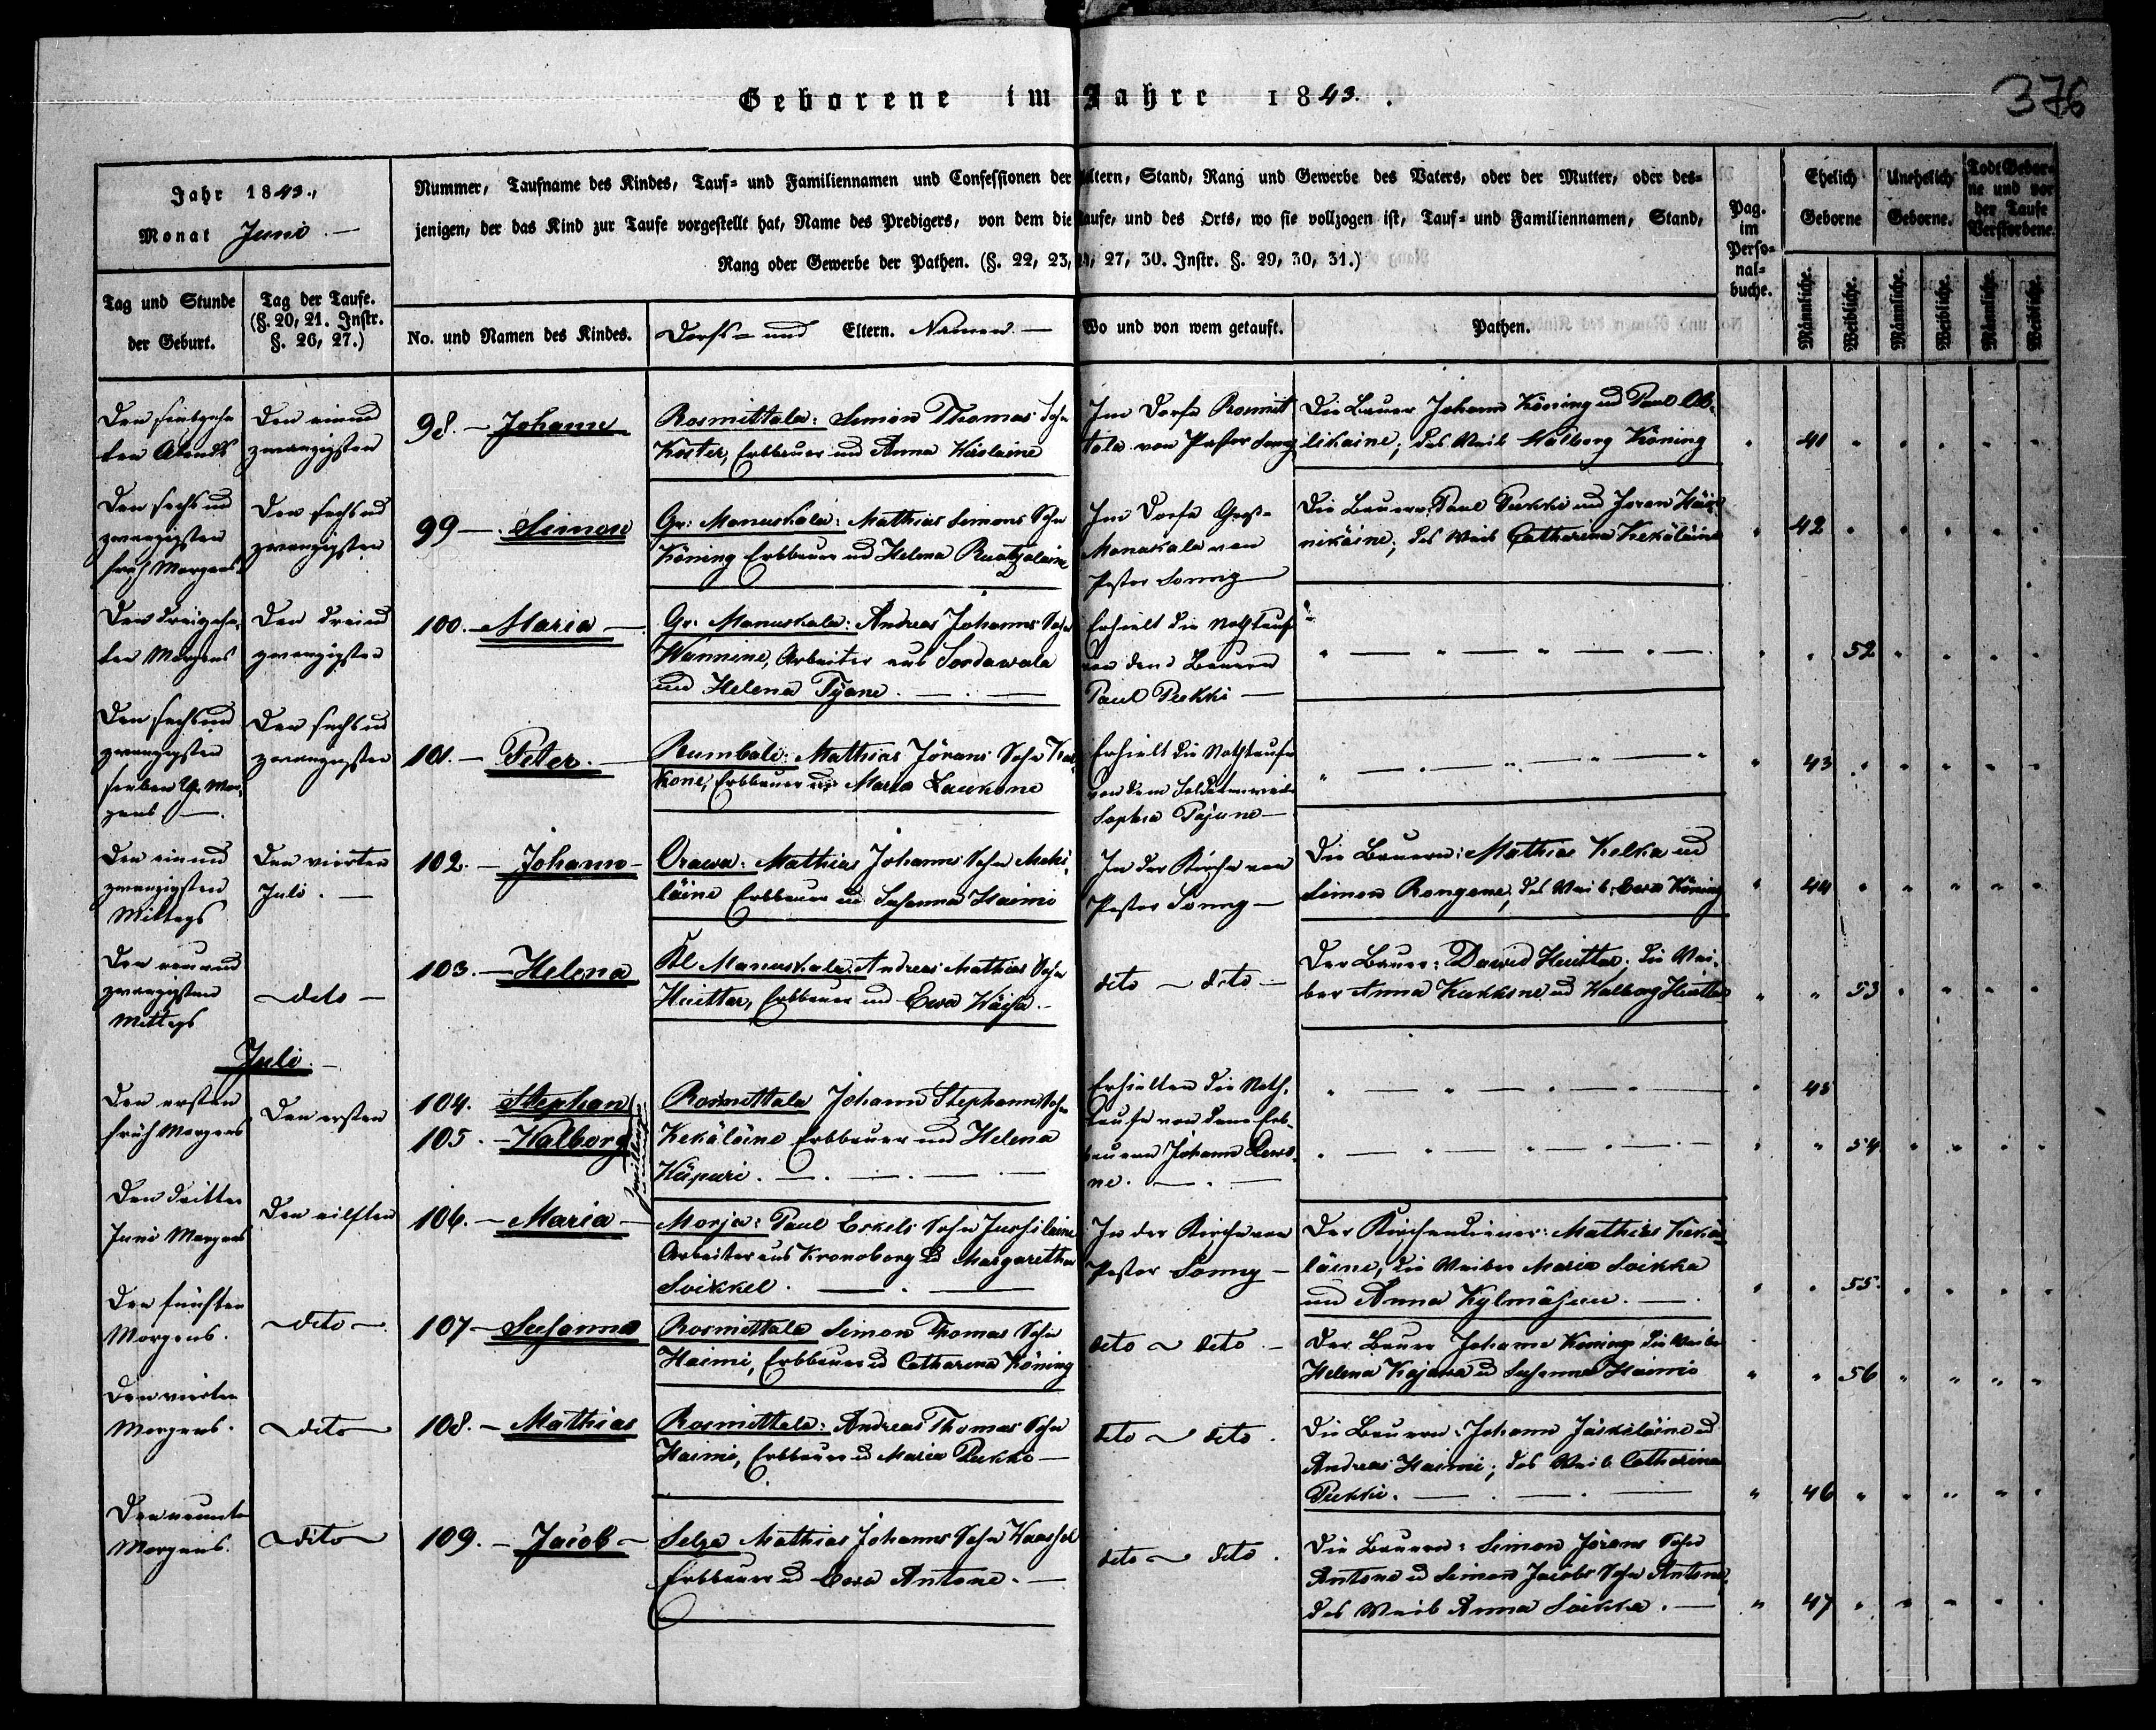 Geborene im Jahre 1843.
376
Jahr 1843.
Monat Juni.
Nummer, Taufname des Kindes, Tauf- und Familiennamen und Confessionen der Eltern, Stand, Rang und Gewerbe des Vaters, oder der Mutter, oder des-
jenigen, der das Kind zur Taufe vorgestellt hat, Name des Predigers, von dem die Taufe, und des Orts, wo sie vollzogen ist, Tauf- und Familiennamen, Stand,
Rang oder Gewerbe der Pathen. (§. 22, 23, 24, 27, 30. Instr. §. 29, 30, 31.)
Pag.
im
Perso-
nal-
buche.
Ehelich
Geborne
Unehelich
Geborne.
Todt Gebor-
ne und vor
der Taufe
Verstorbene.
Tag und Stunde
der Geburt.
Tag der Taufe.
(§. 20, 21. Instr.
§. 26, 27.)
No. und Namen des Kindes.
Dorfs- und Eltern. Namen
Wo und von wem getauft.
Pathen.
Männliche.
Weibliche.
Männliche.
Weibliche.
Männliche.
Weibliche.
ten Abends
Den einund
zwanzigsten
98. Johann
Rosmittala: Simon Thomas Sohn
Köster, Erbbauer und Anna
Im Dorfe Rosmit
tala von Pastor Sonny
Die Bauer Johann Köning und Paul
das Weib Walborg Köning
41
Den sechs und
zwanzigsten
früh Morgens
Den sechs und
zwanzigsten
99 Simon
Gr: Manuskala: Mathias Simons Sohn
Köning Erbbauer und Helena
Im Dorfe Groß-
Manuskala von
Pastor Sonny
Die Bauern Paul Pukki und Joran
das Weib Catharina Kekäläine
42
Den dreizehn
ten Morgens
Den dreiund
zwanzigsten
100. Maria
Gr: Manuskala: Andreas Johanns Sohn
Wannine, Arbeiter aus Sordawala
und Helena Tyäne.
Erhielt die Nothtaufe
von dem Bauern
Paul Pukki
52
Den sechs und
zwanzigsten
sieben Uhr Mor-
gens
Den sechs und
zwanzigsten
101. Peter.
Rumbali: Mathias Jörans Sohn
kone, Erbbauer und Maria Laukone
Erhielt die Nothtaufe
von dem Soldatenweibe
Sophia Pajune
43
Den einund
zwanzigsten
Mittags
Den vierten
Juli.
102. Johann
Orawa: Mathias Johanns Sohn Meki-
läine Erbbauer und Susanna Haimi
In der Kirche von
Pastor Sonny
Die Bauern: Mathias Kelka und
Simon Rongone, das Weib Ewa Köning
44
Den neunund
zwanzigsten
Mittags
dito
103. Helena
Kl Manuskala: Andreas Mathias Sohn
Huittar, Erbbauer und Ewa
dito dito
Der Bauer: David Huittar; die Wei-
ber Anna Kukkone und Walborg Huittar
53
Juli.
Den ersten
früh Morgens
Den ersten
104. Stephan
105. Walborg
Zwillinge
Rosmittala Johann Stephanns Sohn
Kekäläine Erbbauer und Helena
Käpuri.
Erhielten die Noth-
taufe von dem Erb-
bauern Johann
ne.
45
54
Den dritten
Juni Morgens
Den eilften
106. Maria
Morja: Paul Eskels Sohn
Arbeiter aus Kronoborg und Margaretha
Soikkel.
In der Kirche von
Pastor Sonny
Der Kirchendiener: Mathias Kekä-
läine, die Weiber Maria Soikka
und Anna Kylmäsuu.
55
Den fünften
Morgens.
dito
107 Susanna
Rosmittala Simon Thomas Sohn
Haimi, Erbbauer und Catharina Köning
dito dito
Der Bauer Johann Köning, die Weiber
Helena Kajawa und Susanna Haimi
56
Den vierten
Morgens.
dito
108. Mathias
Rosmittala: Andreas Thomas Sohn
Haimi, Erbbauer und Maria Pukki
dito dito.
Die Bauern: Johann Jäskeläine und
Andreas Haimi; das Weib Catharina
Pukki.
46
Den neunten
Morgens.
dito
109. Jacob
Selza Mathias Johanns Sohn
Erbbauer und Ewa Antone.
dito dito.
Die Bauern: Simon Jörans Sohn
Antone und Simon Jacobs Sohn Antone,
das Weib Anna Soikka.
47